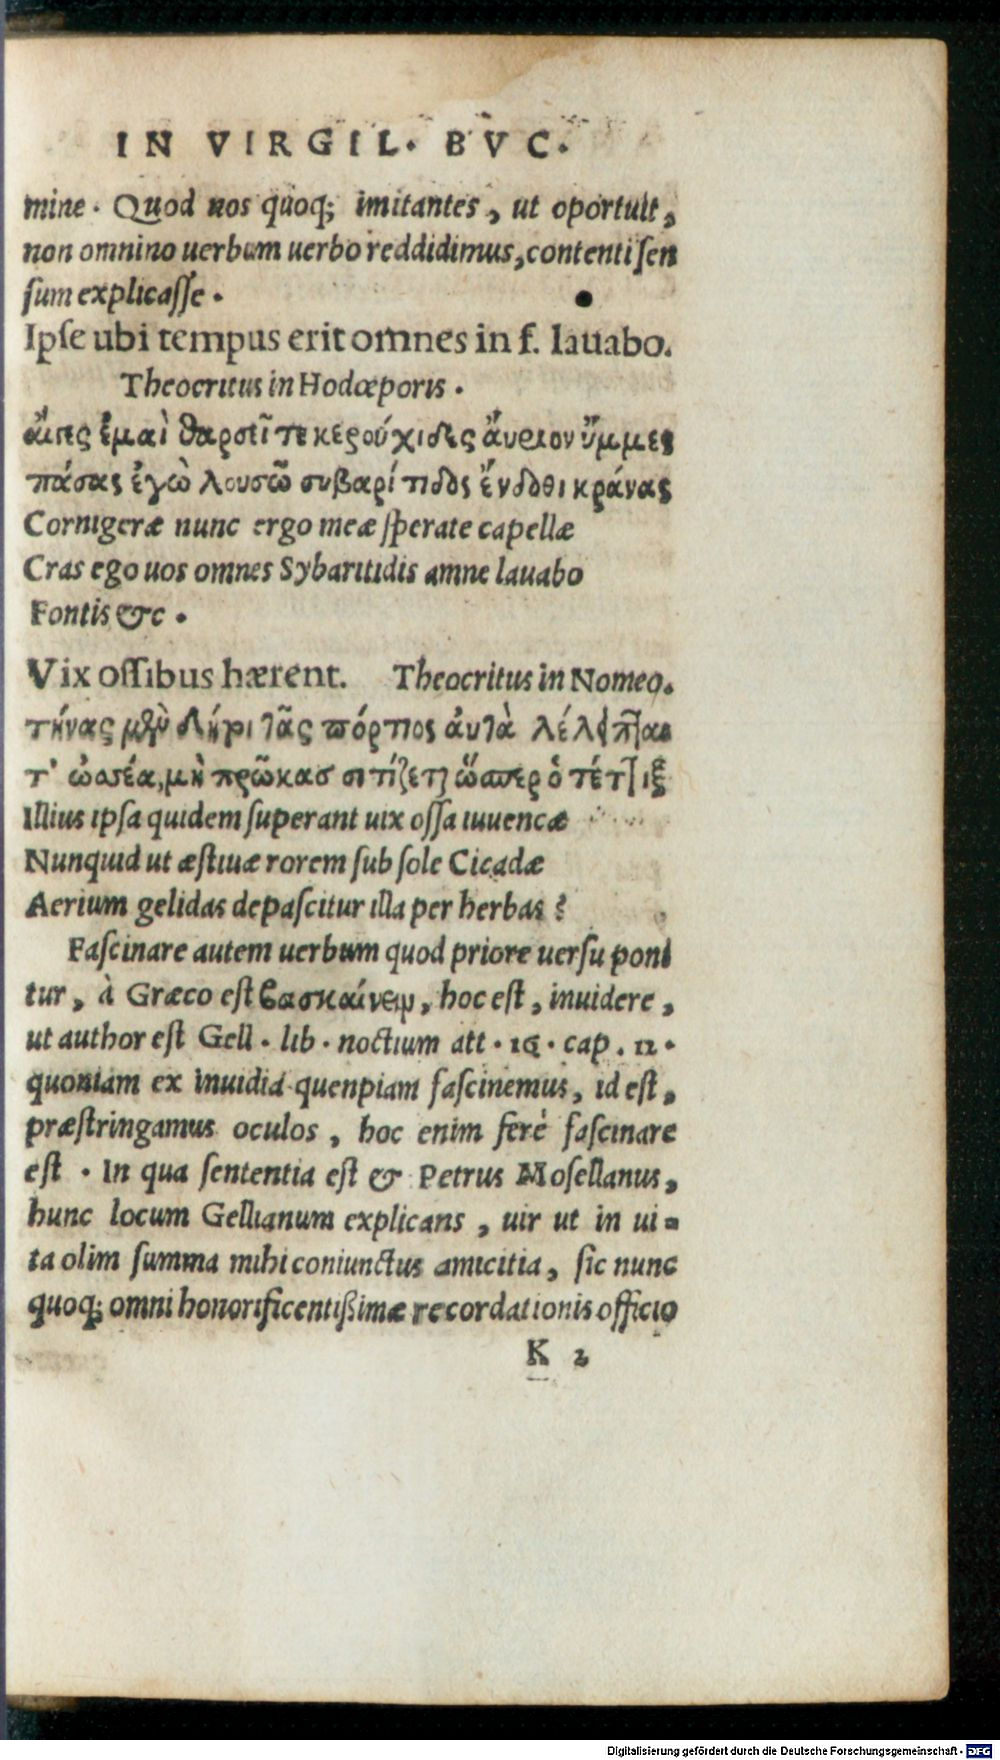 IN VIRGIL. BVC.
mine. Quod nos quoq; imitantes, ut oportuit,
non omnino uerbum uerbo reddidimus, contenti sen
sum explicasse.
Ipse ubi tempus erit omnes in f. lauabo.
Theocritus in Hodœporis.
αἶγες ἐμαὶ θαρσεῖτε κερούχιδες ἄυριον ὔμμες
πάσας ἐγὼ λουσῶ συβαρίτιδος ἔνδοθι κράνας
Cornigeræ nunc ergo meæ sperate capellæ
Cras ego uos omnes Sybaritidis amne lauabo
Fontis &c.
Vix ossibus hærent. Theocritus in Nomeo.
τήνας μὲν δήρι τᾶς πόρτιος ἀυτὰ λέλειπται
τ' ὠστέα, μὴ πρῶκας σιτίζεται ὥσπερ ὁ τέττιξ
Illius ipsa quidem superant uix ossa iuuencæ
Nunquid ut æstiuæ rorem sub sole Cicadæ
Aerium gelidas depascitur illa per herbas?
Fascinare autem uerbum quod priore uersu poni
tur, à Græco est βασκαίνειν, hoc est, inuidere,
ut author est Gell. lib. noctium att. 16. cap. 12.
quoniam ex inuidia quenpiam fascinemus, id est,
præstringamus oculos, hoc enim ferè fascinare
est. In qua sententia est & Petrus Mosellanus,
hunc locum Gellianum explicans, uir ut in ui=
ta olim summa mihi coniunctus amicitia, sic nunc
quoq; omni honorificentißimæ recordationis officio
K 2
Digitalisierung gefördert durch die Deutsche Forschungsgemeinschaft - DFG